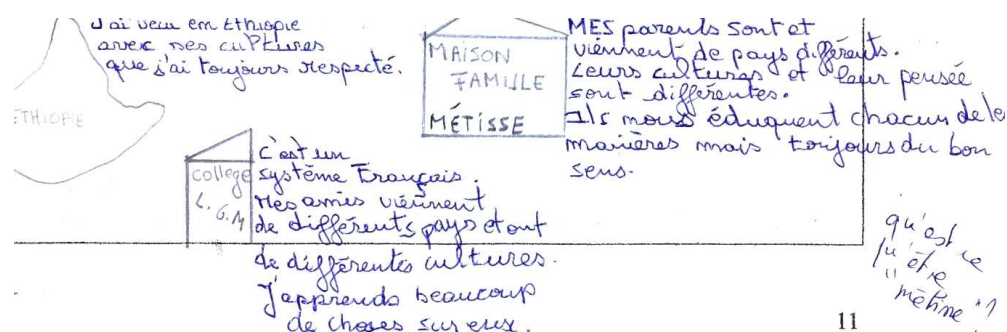 J'ai vécu en Ethiopie
avec ses cultures
que j'ai toujours respecté.
ETHIOPIE
MAISON
FAMILLE
MÉTISSE
MES parents sont et
viénnent de pays différents.
Leurs cultures et leur pensée
sont différentes.
Ils nous éduquent chacun de le
manières mais toujours du bon
sens.
collège
L. G. M
C'est un
système Français.
Mes amies viénnent
de différents pays et ont
de différentes cultures.
J'apprends beaucoup
de choses sur eux.
qu'est ce
qu'être
"métisse"?
11